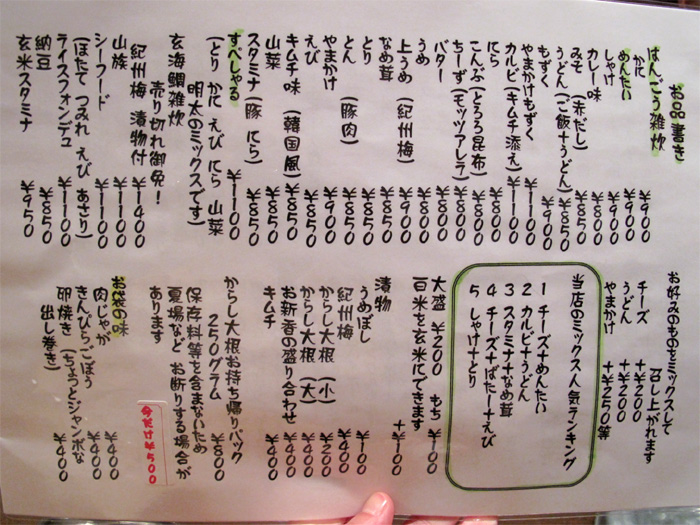 お品書き
はんごう雑炊
かに ¥900
めんたい ¥900
しゃけ ¥900
カレー味 ¥800
みそ(赤だし) ¥800
うどん(ご飯+うどん) ¥850
もずく ¥900
やまかけもずく ¥1100
カルビ(キムチ添え) ¥1100
にら ¥800
こんぶ(とろろ昆布) ¥850
ちーず(モッツアレラ) ¥850
バター ¥850
うめ ¥800
上うめ(紀州梅) ¥900
なめ茸 ¥850
とり ¥850
とん(豚肉) ¥850
やまかけ ¥900
えび ¥850
キムチ味(韓国風) ¥850
山菜 ¥850
スタミナ(豚 にら) ¥850
すぺしゃる ¥1100
(とり かに えび にら 山菜
明太のミックスです)
玄海鯛雑炊 ¥1400
売り切れ御免!
紀州梅 漬物付 ¥1400
山族 ¥1100
シーフード ¥1100
(ほたて つみれ えび あさり)
ライスフォンデュ ¥1100
納豆 ¥850
玄米スタミナ ¥950
お好みのものをミックスして
召し上がれます
チーズ +¥200
うどん +¥200
やまかけ +¥250等
当店のミックス人気ランキング
1 チーズ+めんたい
2 カルビ+うどん
3 スタミナ+なめ茸
4 チーズ+ばたー+えび
5 しゃけ+とり
大盛 ¥200 もち ¥100
百米を玄米にできます
+¥100
漬物
うめぼし ¥100
紀州梅 ¥400
からし大根(小) ¥200
からし大根(大) ¥400
お新香の盛り合わせ ¥400
キムチ ¥400
からし大根お持ち帰りパック
250グラム ¥800
保存料等を含まないため
夏場など お断りする場合が
あります
今だけ¥500
お袋の味
肉じゃが ¥400
きんぴらごぼう ¥400
卵焼き(ちょっとジャンボな
出し巻き) ¥400